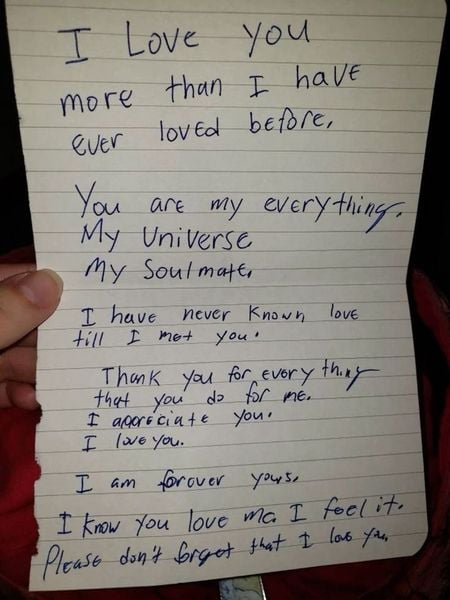 I Love you
more than I have
ever loved before.
You are my everything.
My Universe
My Soulmate.
I have never known love
till I met you.
Thank you for everything
that you do for me.
I appreciate you.
I love you.
I am forever yours.
I know you love me. I feel it.
Please don't forget that I love you.